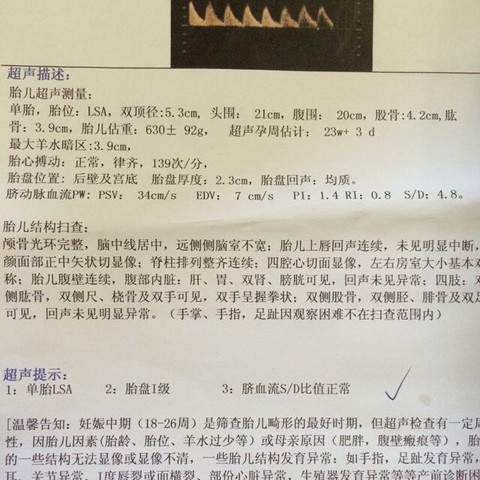 超声描述:
胎儿超声测量:
单胎, 胎位: LSA, 双顶径:5.3cm, 头围: 21cm, 腹围: 20cm, 股骨:4.2cm,肱
骨: 3.9cm, 胎儿估重: 630± 92g, 超声孕周估计: 23w+ 3 d
最大羊水暗区:3.9cm,
胎心搏动: 正常, 律齐, 139次/分,
胎盘位置: 后壁及宫底 胎盘厚度: 2.3cm, 胎盘回声: 均质。
脐动脉血流PW: PSV: 34cm/s EDV: 7 cm/s PI: 1.4 RI: 0.8 S/D: 4.8。
胎儿结构扫查:
颅骨光环完整, 脑中线居中, 远侧侧脑室不宽; 胎儿上唇回声连续, 未见明显中断,
颜面部正中矢状切显像; 脊柱排列整齐连续; 四腔心切面显像, 左右房室大小基本对
称; 胎儿腹壁连续, 腹部内脏: 肝、胃、双肾、膀胱可见, 回声未见异常; 四肢: 双
侧肱骨, 双侧尺、桡骨及双手可见, 双手呈握拳状; 双侧股骨, 双侧胫、腓骨及双足
可见, 回声未见明显异常。(手掌、手指, 足趾因观察困难不在扫查范围内)
超声提示:
1: 单胎LSA 2: 胎盘I级 3: 脐血流S/D比值正常
[温馨告知: 妊娠中期 (18-26周) 是筛查胎儿畸形的最好时期, 但超声检查有一定局
性, 因胎儿因素(胎龄、胎位、羊水过少等) 或母亲原因 (肥胖, 腹壁瘢痕等), 胎
的一些结构无法显像或显像不清, 一些胎儿结构发育异常: 如手指, 足趾发育异常,
耳、关节异常、I度唇裂或面横裂、部份心脏异常, 生殖器发育异常等等产前诊断困